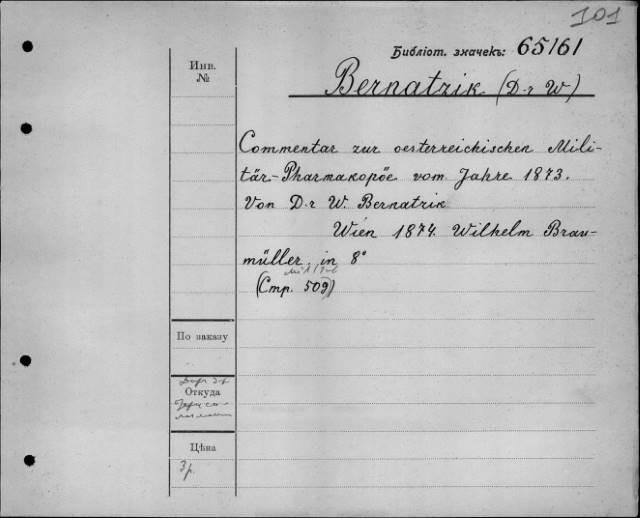 101
Библіот. значекъ: 65161
Инв.
№
Bernatzik (Dr W)
Commentar zur oesterreichischen Mili-
tär-Pharmakopöe vom Jahre 1873.
Von Dr W. Bernatzik
Wien 1874. Wilhelm Brau-
müller, in 8°
(Стр. 509)
По заказу
Откуда
Цѣна
3 р.